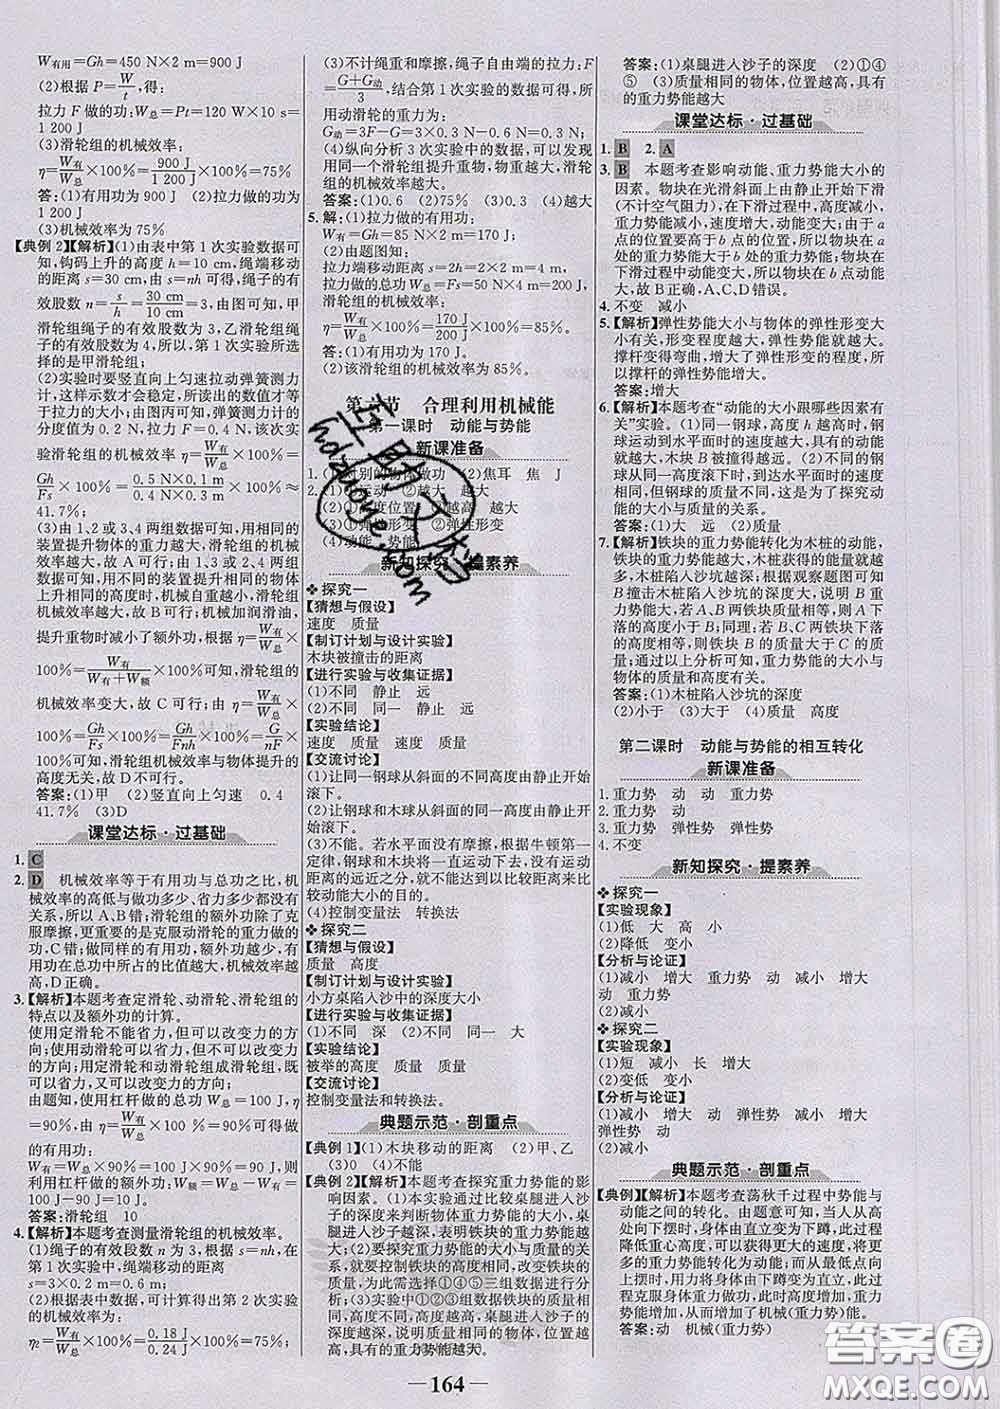 W有用=Gh=450 N×2 m=900 J
(2)根据 P=W/t,得:
拉力 F 做的功:W总=Pt=120 W×10 s=
1 200 J
(3)滑轮组的机械效率:
η=W有/W总×100%=900 J/1 200 J×100%=75%
答:(1)有用功为 900 J (2)拉力做的功为
1 200 J
(3)机械效率为 75%
【典例 2】【解析】(1)由表中第 1 次实验数据可
知,钩码上升的高度 h=10 cm,绳端移动
的距离 s=30 cm,由 s=nh 可得,绳子的有
效股数 n=s/h=30 cm/10 cm=3,由图可知,甲
滑轮组绳子的有效股数为 3,乙滑轮组绳子
的有效股数为 4,所以,第 1 次实验所选择
的是甲滑轮组;
(2)实验时要竖直向上匀速拉动弹簧测力
计,这样示数才会稳定,所读出的数值才等
于拉力的大小,由图丙可知,弹簧测力计的
分度值为 0.2 N,拉力 F=0.4 N,该次实
验滑轮组的机械效率 η=W有/W总×100%=
Gh/Fs×100%=0.5 N×0.1 m/0.4 N×0.3 m×100%≈
41.7%;
(3)由 1、2 或 3、4 两组数据可知,用相同的
装置提升物体的重力越大,滑轮组的机械效
率越大,故 A 可行;由 1、3 或 2、4 两组数据
可知,用不同的装置提升相同的物体上升相
同的高度时,机械越重,滑轮组的机械效率
越低,故 B 可行;给机械加润滑油,
提升重物时减小了额外功,根据 η=W有/W总×
100%=W有/W有+W额×100%可知,滑轮组的
机械效率变大,故 C 可行;由 η=W有/W总×
100%=Gh/Fs×100%=Gh/Fnh×100%=G/nF×
100%可知,滑轮组的机械效率与物体提升的
高度无关,故 D 不可行。
答案:(1)甲 (2)竖直向上匀速 0.4
41.7% (3)D
课堂达标·过基础
1. C
2. D 机械效率等于有用功与总功之比,机
械效率的高低与做功多少、省力多少都没有
关系,所以 A、B 错;滑轮组的额外功除了克
服摩擦,更重要的是克服动滑轮的重力做的
功,C 错;做同样的有用功,额外功越少,有用
功在总功中所占的比值越大,机械效率越
高,D 正确。
3.【解析】本题考查定滑轮、动滑轮、滑轮组的
特点以及额外功的计算。
使用定滑轮不能省力,但可以改变力的方
向;使用动滑轮可以省力,但不可以改变力
的方向;用定滑轮和动滑轮组成滑轮组,既
可以省力,又可以改变力的方向。
由题知,使用杠杆做的总功 W总=100 J,η
=90%,由 η=W有/W总×100%可得使用杠杆做
的有用功:
W有=W总×90%=100 J×90%=90 J,则
利用杠杆做的额外功:W额=W总-W有=
100 J-90 J=10 J。
答案:滑轮组 10
4.【解析】本题考查测量滑轮组的机械效率。
(1)绳子的有效段数 n 为 3,根据 s=nh,在
第 1 次实验中,绳端移动的距离
s=3×0.2 m=0.6 m;
(2)根据表中数据,可计算得出第 2 次实验
的机械效率为:
η2=W有/W总×100%=0.18 J/0.24 J×100%=75%;
(3)不计绳重和摩擦,绳子自由端的拉力:F
=G+G动/3,结合第 1 次实验的数据可得,所
用动滑轮的重力为:
G动=3F-G=3×0.3 N-0.6 N=0.3 N;
(4)纵向分析 3 次实验中的数据,可以发现
用同一个滑轮组提升重物,物重越大,滑轮
组的机械效率越大。
答案:(1)0.6 (2)75% (3)0.3 (4)越大
5.解:(1)拉力做的有用功:
W有=Gh=85 N×2 m=170 J;
(2)由题图知:
拉力端移动距离 s=2h=2×2 m=4 m,
拉力做的总功 W总=Fs=50 N×4 m=200 J,
滑轮组的机械效率:
η=W有/W总×100%=170 J/200 J×100%=85%。
答:(1)有用功为 170 J。
(2)该滑轮组的机械效率为 85%。
合理利用机械能
第一课时 动能与势能
新课准备
(2)焦耳 焦 J
②越大 越大
新知探究·提素养
❖探究一
【猜想与假设】
速度 质量
【制订计划与设计实验】
木块被撞击的距离
【进行实验与收集证据】
(1)不同 静止 远
(2)不同 静止 远
【实验结论】
速度 质量 速度 质量
【交流讨论】
(1)让同一钢球从斜面的不同高度由静止开始
滚下。
(2)让钢球和木球从斜面的同一高度由静止开
始滚下。
(3)不能。若水平面没有摩擦,根据牛顿第一
定律,钢球和木块将一起运动下去,它们运动
的远近之分,就不能达到比较距离远近来比较
动能大小的目的。
(4)控制变量法 转换法
❖探究二
【猜想与假设】
质量 高度
【制订计划与设计实验】
小方桌陷入沙中的深度大小
【进行实验与收集证据】
(1)不同 深 (2)不同 同一 大
【实验结论】
被举的高度 质量 质量 高度
【交流讨论】
控制变量法和转换法。
典题示范·剖重点
【典例 1】(1)木块移动的距离 (2)甲、乙
(3)0 (4)不能
【典例 2】【解析】本题考查探究重力势能的影
响因素。(1)本实验通过比较桌腿进入沙子
的深度来判断物体重力势能的大小,桌腿进
入沙子越深,表明铁块的重力势能越大;(2)
要探究重力势能的大小与质量的关系,就要
控制铁块的高度相同,改变其质量,为此需
选择①④⑤三组数据进行分析;(3)实验中
①②③组数据铁块的质量相同,高度越高,
桌腿进入沙子的深度越深,说明质量相同的
物体,位置越高,具有的重力势能越大。
答案:(1)桌腿进入沙子的深度 (2)①④
⑤ (3)质量相同的物体,位置越高,具有
的重力势能越大
课堂达标·过基础
1. B 2. A
3. B 本题考查影响动能、重力势能大小的
因素。物块在光滑斜面上由静止开始下滑
(不计空气阻力),在下滑过程中,高度减小,
重力势能减小,速度增大,动能变大;由于 a
点的位置要高于 b 点的位置,所以物块在 a
处的重力势能大于 b 处的重力势能;物块在
下滑过程中动能变大,所以物块在 b 点动能
大,故 B 正确,A、C、D 错误。
4. 不变 减小
5.【解析】弹性势能大小与物体的弹性形变大
小有关,弹性形变越大,弹性势能就越大。
撑杆变得弯曲,增大了弹性形变的程度,所
以,撑杆的弹性势能增大。
答案:增大
6.【解析】本题考查“动能的大小跟哪些因素有
关”实验。(1)同一钢球,高度 h 越高时,钢
球运动到水平面时的速度越大,具有的动能
越大,木块被撞得越远。(2)让不同的钢球
从相同高度滚下,到达水平面时的速度相
同,但钢球的质量不同,这是为了探究动能
的大小与质量的关系。
答案:(1)大 远 (2)质量
7.【解析】铁块的重力势能转化为木桩的动能,
铁块的重力势能越大,木桩获得的能量越
多,木桩陷入沙坑越深;根据观察题图可知
B 撞击木桩陷入沙坑的深度大,说明 B 重力
势能大,若 A、B 两个铁块质量相等,则 A 下
落的高度小于 B;同理;若 B、C 两铁块下落
的高度相等,则铁块 B 的质量大于 C 的质
量;通过以上分析可知,重力势能的大小与
物体的质量和高度有关。
答案:(1)木桩陷入沙坑的深度
(2)小于 (3)大于 (4)质量 高度
第二课时 动能与势能的相互转化
新课准备
1. 重力势 动 动 重力势
2. 重力势 动
3. 重力势 弹性势 弹性势 重力势
4. 不变
新知探究·提素养
❖探究一
【实验现象】
(1)低 大 高 小
(2)降低 变小
【分析与论证】
(1)减小 增大 重力势 动 减小 增大
动 重力势
(2)减小
❖探究二
【实验现象】
(1)短 减小 长 增大
(2)变低 变小
【分析与论证】
(1)减小 增大 动 弹性势 减小 增大
弹性势 动
(2)减小
典题示范·剖重点
【典例】【解析】本题考查荡秋千过程中势能与
动能之间的转化。由题意可知,当人从高处
向下摆时,身体由直立变为下蹲,此过程降
低重心高度,可以获得更大的速度,实现了
将更多的重力势能转化为动能;而从最低点
向上摆时,用力将身体变为直立,此过程克
服身体重力做功,此时高度增加,重力势能
增加,从而增加了机械(重力势)能。
答案:动 机械(重力势)
— 164 —
答案圈
MXQE.COM